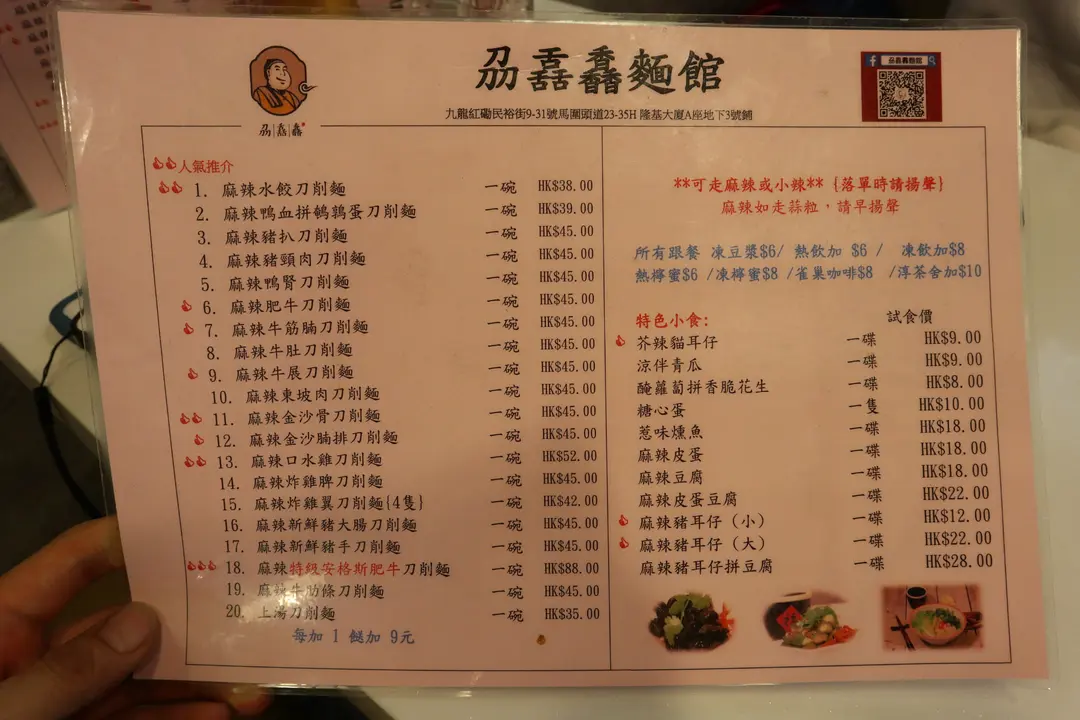 刕壵馫麵館
九龍紅磡民裕街9-31號馬圍頭道23-35H 隆基大廈A座地下3號鋪
人氣推介
1. 麻辣水餃刀削麵 一碗 HK$38.00
2. 麻辣鴨血拼鵪鶉蛋刀削麵 一碗 HK$39.00
3. 麻辣豬扒刀削麵 一碗 HK$45.00
4. 麻辣豬頸肉刀削麵 一碗 HK$45.00
5. 麻辣鴨腎刀削麵 一碗 HK$45.00
6. 麻辣肥牛刀削麵 一碗 HK$45.00
7. 麻辣牛筋腩刀削麵 一碗 HK$45.00
8. 麻辣牛肚刀削麵 一碗 HK$45.00
9. 麻辣牛展刀削麵 一碗 HK$45.00
10. 麻辣東坡肉刀削麵 一碗 HK$45.00
11. 麻辣金沙骨刀削麵 一碗 HK$45.00
12. 麻辣金沙腩排刀削麵 一碗 HK$45.00
13. 麻辣口水雞刀削麵 一碗 HK$52.00
14. 麻辣炸雞脾刀削麵 一碗 HK$45.00
15. 麻辣炸雞翼刀削麵{4隻} 一碗 HK$42.00
16. 麻辣新鮮豬大腸刀削麵 一碗 HK$45.00
17. 麻辣新鮮豬手刀削麵 一碗 HK$45.00
18. 麻辣特級安格斯肥牛刀削麵 一碗 HK$88.00
19. 麻辣牛肋條刀削麵 一碗 HK$45.00
20. 上湯刀削麵 一碗 HK$35.00
每加 1 餸加 9元
**可走麻辣或小辣** {落單時請揚聲}
麻辣如走蒜粒，請早揚聲
所有跟餐 凍豆漿$6/ 熱飲加 $6 / 凍飲加$8
熱檸蜜$6 /凍檸蜜$8 /雀巢咖啡$8 /淳茶舍加$10
特色小食: 試食價
芥辣貓耳仔 一碟 HK$9.00
涼伴青瓜 一碟 HK$9.00
醃蘿蔔拼香脆花生 一碟 HK$8.00
糖心蛋 一隻 HK$10.00
惹味燻魚 一碟 HK$18.00
麻辣皮蛋 一碟 HK$18.00
麻辣豆腐 一碟 HK$18.00
麻辣皮蛋豆腐 一碟 HK$22.00
麻辣豬耳仔（小） 一碟 HK$12.00
麻辣豬耳仔（大） 一碟 HK$22.00
麻辣豬耳仔拼豆腐 一碟 HK$28.00